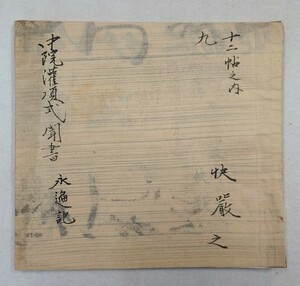 十二帖之内
九
快嚴之
中院灌頂式聞書 永遍記